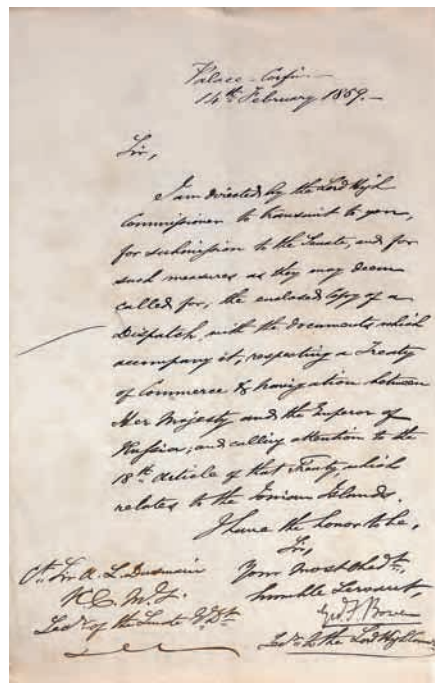 Palace - Corfu -
14th February 1859. -
Sir,
I am directed by the Lord High
Commissioner to transmit to you,
for submission to the Senate, and for
such measures as they may deem
called for, the enclosed Copy of a
Dispatch, with the documents which
accompany it, respecting a Treaty
of Commerce & Navigation between
Her Majesty and the Emperor of
Russia; and calling attention to the
18th Article of that Treaty, which
relates to the Ionian Islands.
I have the honor to be,
Sir,
Your most obedt.
humble Servant,
Geo. F. Bowen
Secy. to the Lord High
Sir A. L. Dusmani
K.C.M.G.
Secy. of the Senate